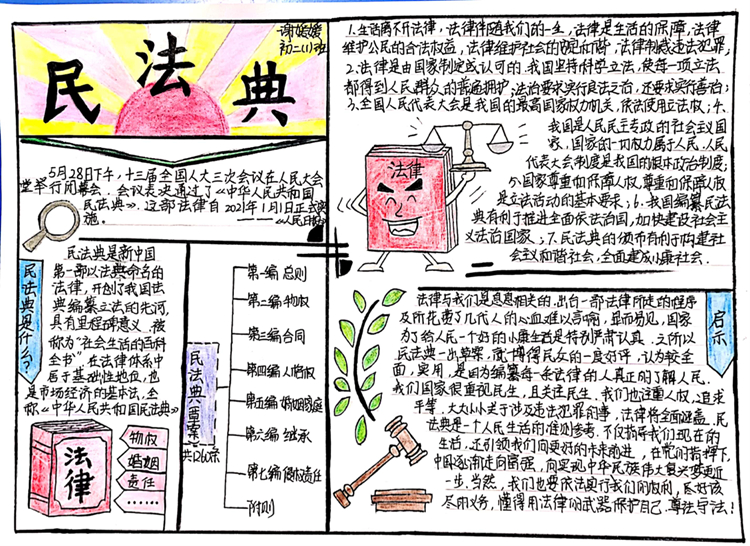 谢媛媛
初二(1)班
民法典
5月28日下午,十三届全国人大三次会议在人民大会
堂举行闭幕会.会议表决通过了《中华人民共和国
民法典》.这部法律自2021年1月1日正式实
施。
——《人民日报》
民法典是什么?
民法典是新中国
第一部以法典命名的
法律,开创了我国法
典编纂立法的先河,
具有里程碑意义.被
称为“社会生活的百科
全书”,在法律体系中
居于基础性地位,也
是市场经济的基本法,全
称《中华人民共和国民法典》
法律
物权
婚姻
责任
……
民法典(草案)
共1260条
第一编 总则
第二编 物权
第三编 合同
第四编 人格权
第五编 婚姻家庭
第六编 继承
第七编 侵权责任
附则
1.生活离不开法律,法律伴随我们的一生,法律是生活的保障,法律
维护公民的合法权益,法律维护社会的
法律制裁违法犯罪;
2.法律是由国家制定或认可的.我国坚持科学立法,使每一项立法
都得到人民群众的普遍拥护;法治要求实行良法之治,还要求实行善治;
3.全国人民代表大会是我国的最高国家权力机关,依法使用立法权;4.
我国是人民民主专政的社会主义国
家,国家的一切权力属于人民.人民
代表大会制度是我国的根本政治制度;
5.国家尊重和保障人权,尊重和保障人权
是立法活动的基本要求;6.我国编纂民法
典有利于推进全面依法治国,加快建设社会主
义法治国家;7.民法典的颁布有利于构建社
会主义和谐社会,全面建成小康社会.
法律
启示
法律与我们是息息相关的.出台一部法律所走的程序
及所花费了几代人的心血难以言喻,显而易见,国家
为了给人民一个好的小康生活是特别严肃认真.之所以
民法典一出草案,就博得民众的一度好评,认为较全
面,实用,是因为编纂每一条法律的人真正的了解人民.
我们国家很重视民生,且关注民生.我们也注重人权,追求
平等.大大小小关于涉及违法犯罪的事,法律将全面涵盖.民
法典是一个人民生活的准则参考.不仅指导我们现在的
生活,还引领我们向更好的未来前进,在它们指挥下,
中国逐渐走向富强,向实现中华民族伟大复兴梦更近
一步.当然,我们也要依法实行我们的权利,尽好该
尽的义务,懂得用法律的武器保护自己.尊法守法!